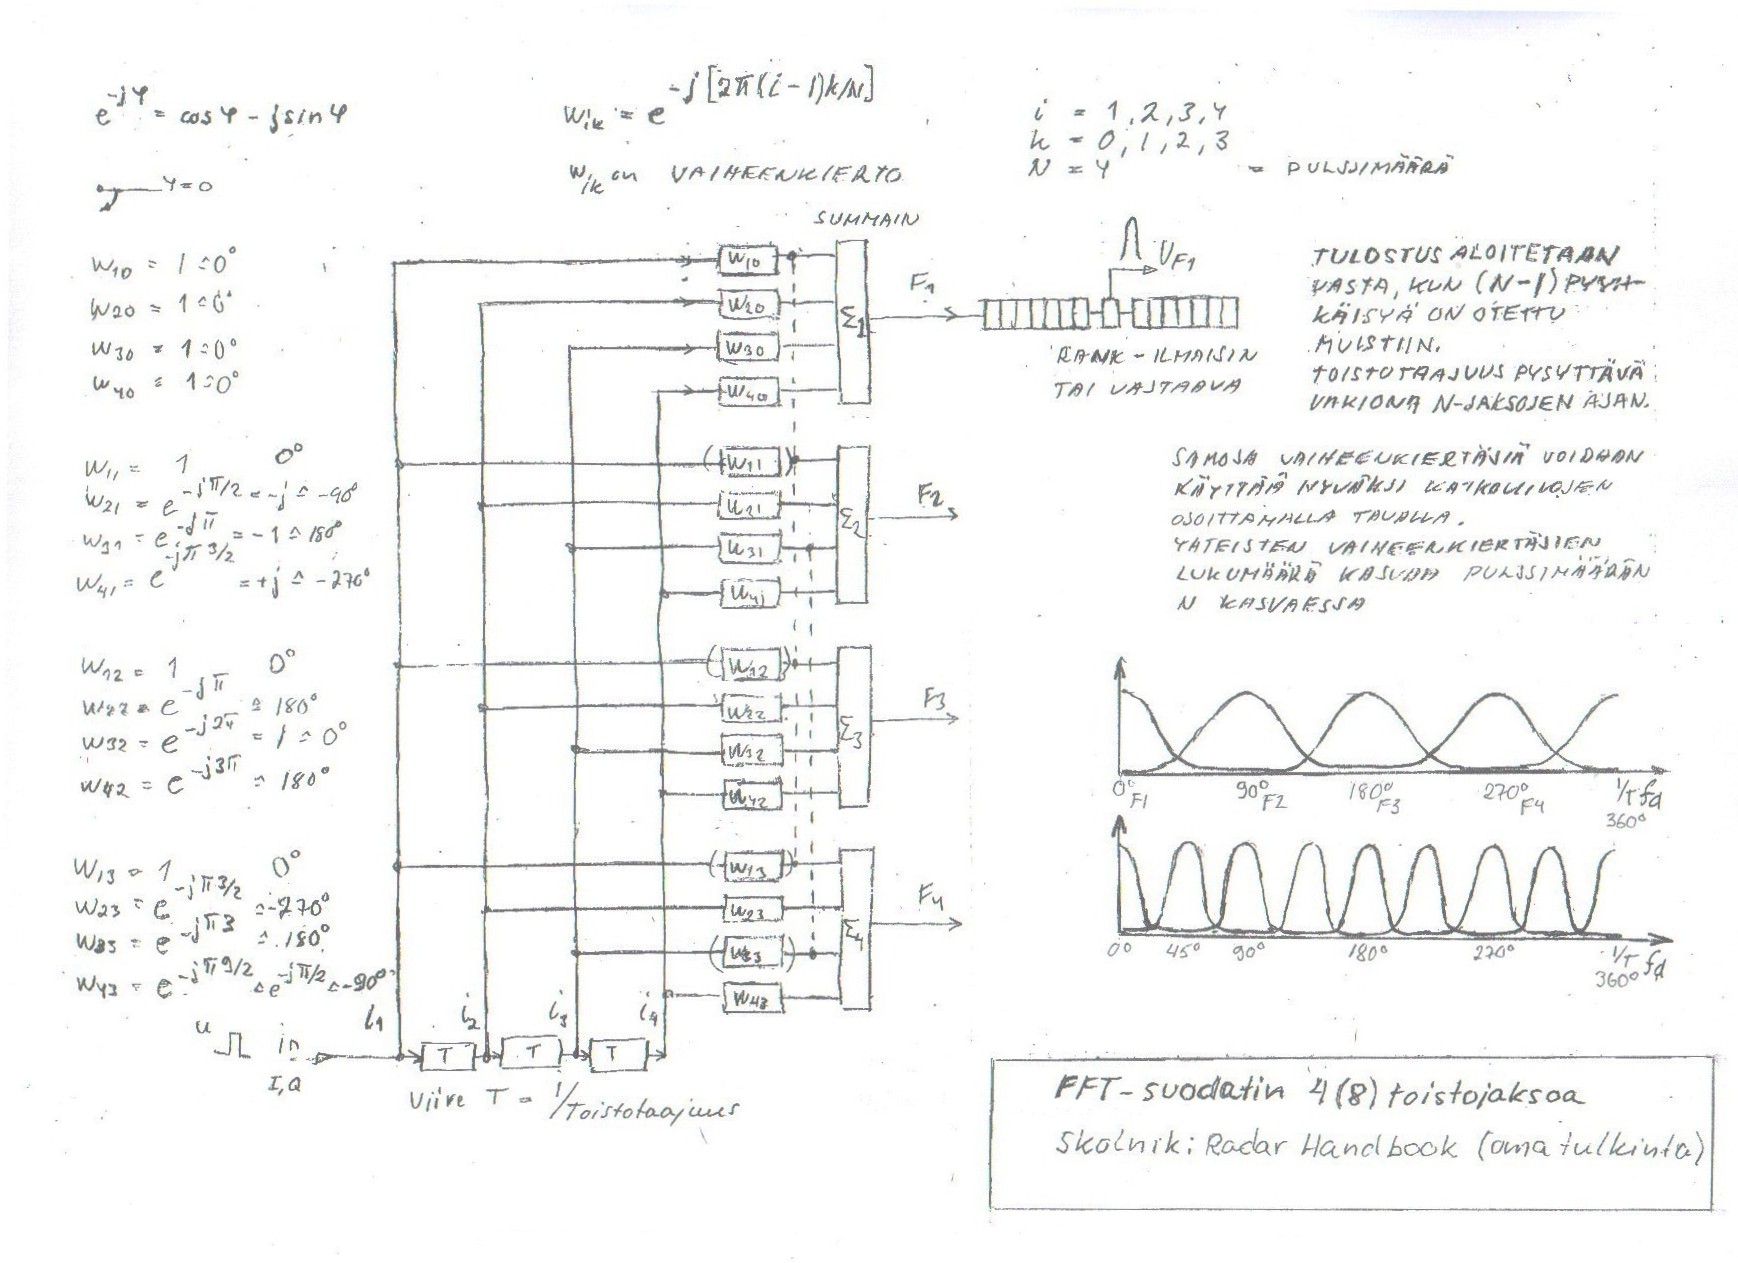 e^-jφ = cosφ - jsinφ
φ=0
W_ik = e^-j[2π(i-1)k/N]
W_ik on VAIHEENKIERTO
i = 1,2,3,4
k = 0,1,2,3
N = 4 = PULSSIMÄÄRÄ
W10 = 1 ≙ 0°
W20 = 1 ≙ 0°
W30 = 1 ≙ 0°
W40 = 1 ≙ 0°
W11 = 1 0°
W21 = e^-jπ/2 = -j ≙ -90°
W31 = e^-jπ = -1 ≙ 180°
W41 = e^-jπ3/2 = +j ≙ -270°
W12 = 1 0°
W22 = e^-jπ ≙ 180°
W32 = e^-j2π = 1 ≙ 0°
W42 = e^-j3π ≙ 180°
W13 = 1 0°
W23 = e^-jπ3/2 ≙ -270°
W33 = e^-jπ3 ≙ 180°
W43 = e^-jπ9/2 ≙ e^-jπ/2 ≙ -90°
SUMMAIN
W10
W20
W30
W40
Σ1
F1
(W11)
W21
W31
W41
Σ2
F2
(W12)
W22
W32
W42
Σ3
F3
(W13)
W23
(W33)
W43
Σ4
F4
i1 i2 i3 i4
u in
I,Q
T T T
Viive T = 1/Toistotaajuus
U_F1
RANK-ILMAISIN
TAI VASTAAVA
TULOSTUS ALOITETAAN
VASTA, KUN (N-1) PYYH-
KÄISYÄ ON OTETTU
MUISTIIN.
TOISTOTAAJUUS PYSYTTÄVÄ
VAKIONA N-JAKSOJEN AJAN.
SAMOJA VAIHEENKIERTÄJIÄ VOIDAAN
KÄYTTÄÄ HYVÄKSI KATKOVIIVOJEN
OSOITTAMALLA TAVALLA.
YHTEISTEN VAIHEENKIERTÄJIEN
LUKUMÄÄRÄ KASVAA PULSSIMÄÄRÄN
N KASVAESSA
0° F1 90° F2 180° F3 270° F4 1/T fd
360°
0° 45° 90° 180° 270° 1/T fd
360°
FFT-suodatin 4(8) toistojaksoa
Skolnik: Radar Handbook (oma tulkinta)